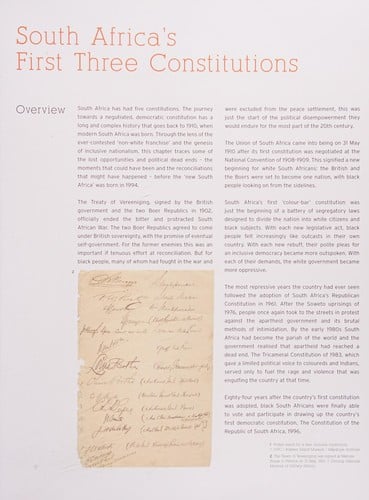 South Africa's
First Three Constitutions
Overview
South Africa has had five constitutions. The journey
towards a negotiated, democratic constitution has a
long and complex history that goes back to 1910, when
modern South Africa was born. Through the lens of the
ever-contested 'non-white franchise' and the genesis
of inclusive nationalism, this chapter traces some of
the lost opportunities and political dead ends - the
moments that could have been and the reconciliations
that might have happened - before the 'new South
Africa' was born in 1994.
The Treaty of Vereeniging, signed by the British
government and the two Boer Republics in 1902,
officially ended the bitter and protracted South
African War. The two Boer Republics agreed to come
under British sovereignty, with the promise of eventual
self-government. For the former enemies this was an
important if tenuous effort at reconciliation. But for
black people, many of whom fought in the war and
were excluded from the peace settlement, this was
just the start of the political disempowerment they
would endure for most of the 20th century.
The Union of South Africa came into being on 31 May
1910 after its first constitution was negotiated at the
National Convention of 1908-1909. This signified a new
beginning for white South Africans: the British and
the Boers were set to become one nation, with black
people looking on from the sidelines.
South Africa's first 'colour-bar' constitution was
just the beginning of a battery of segregatory laws
designed to divide the nation into white citizens and
black subjects. With each new legislative act, black
people felt increasingly like outcasts in their own
country. With each new rebuff, their polite pleas for
an inclusive democracy became more outspoken. With
each of their demands, the white government became
more oppressive.
The most repressive years the country had ever seen
followed the adoption of South Africa's Republican
Constitution in 1961. After the Soweto uprisings of
1976, people once again took to the streets in protest
against the apartheid government and its brutal
methods of intimidation. By the early 1980s South
Africa had become the pariah of the world and the
government realised that apartheid had reached a
dead end. The Tricameral Constitution of 1983, which
gave a limited political voice to coloureds and Indians,
served only to fuel the rage and violence that was
engulfing the country at that time.
Eighty four years after the country's first constitution
was adopted, black South Africans were finally able
to vote and participate in drawing up the country's
first democratic constitution, The Constitution of the
Republic of South Africa, 1996.
2
1
2